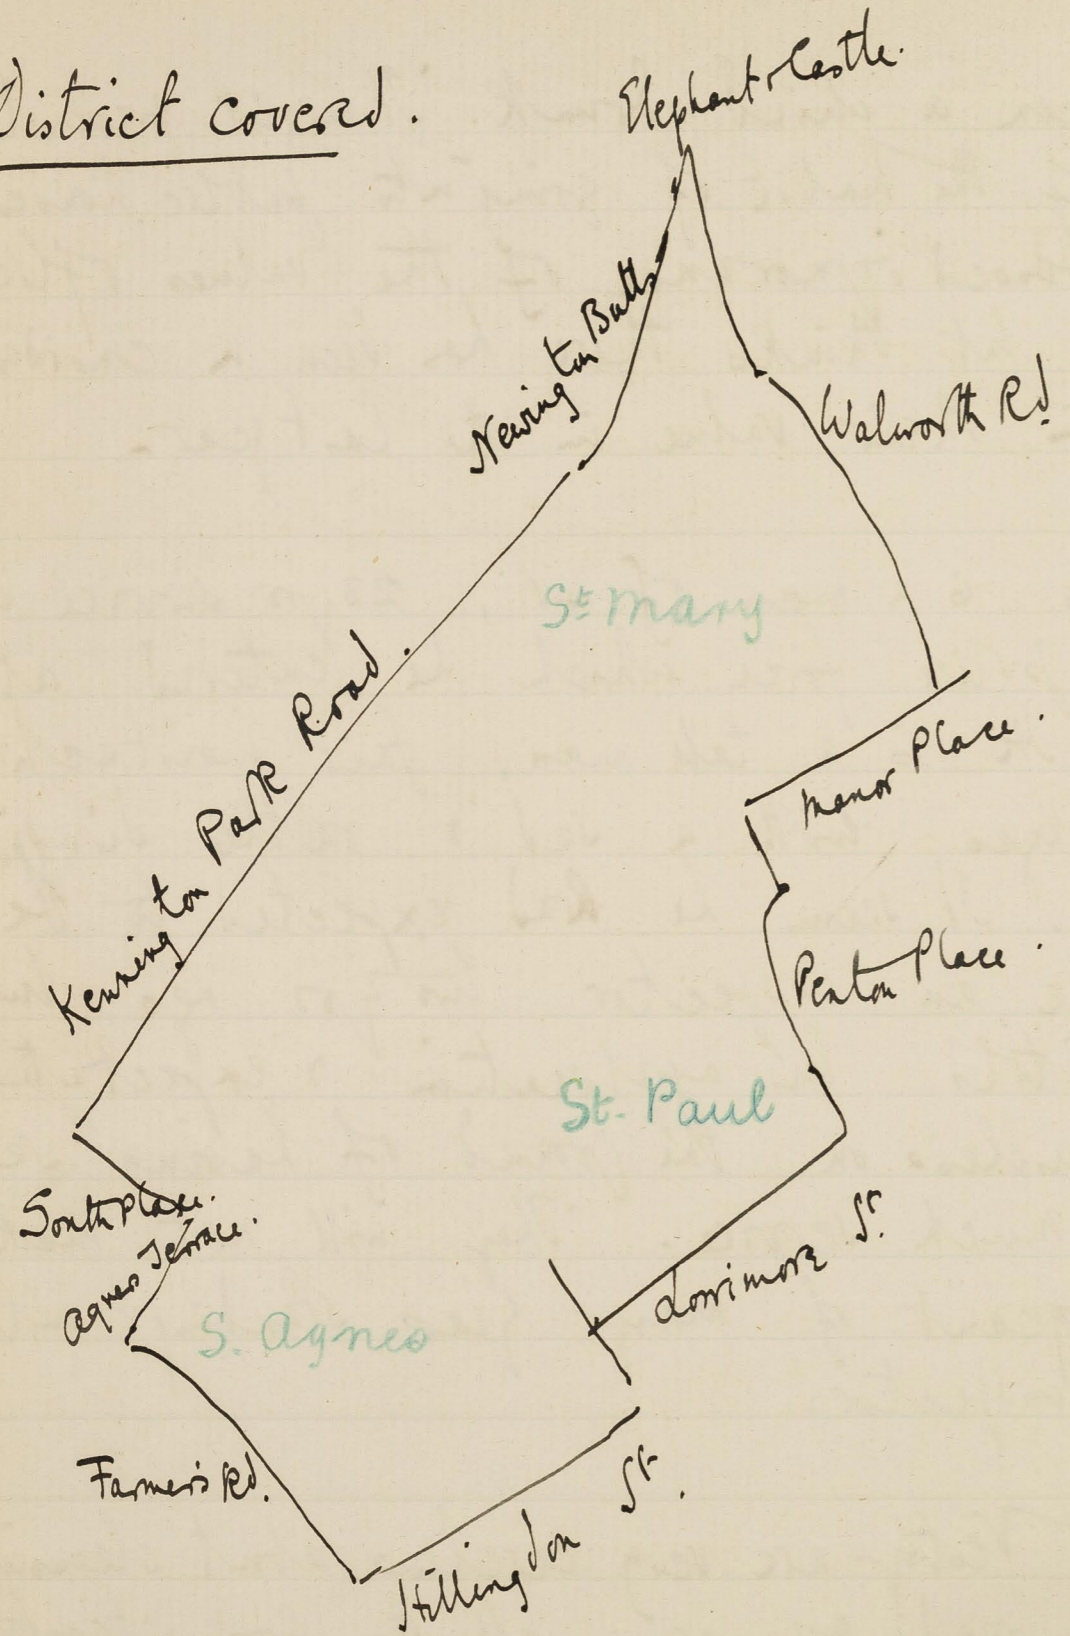 District covered.
Elephant & Castle.
Newington Butts
Walworth Rd.
St Mary
Kennington Park Road.
Manor Place.
Penton Place.
St. Paul
South Place.
Agnes Terrace.
Lorrimore St.
S. Agnes
Farmer's Rd.
Hillingdon St.